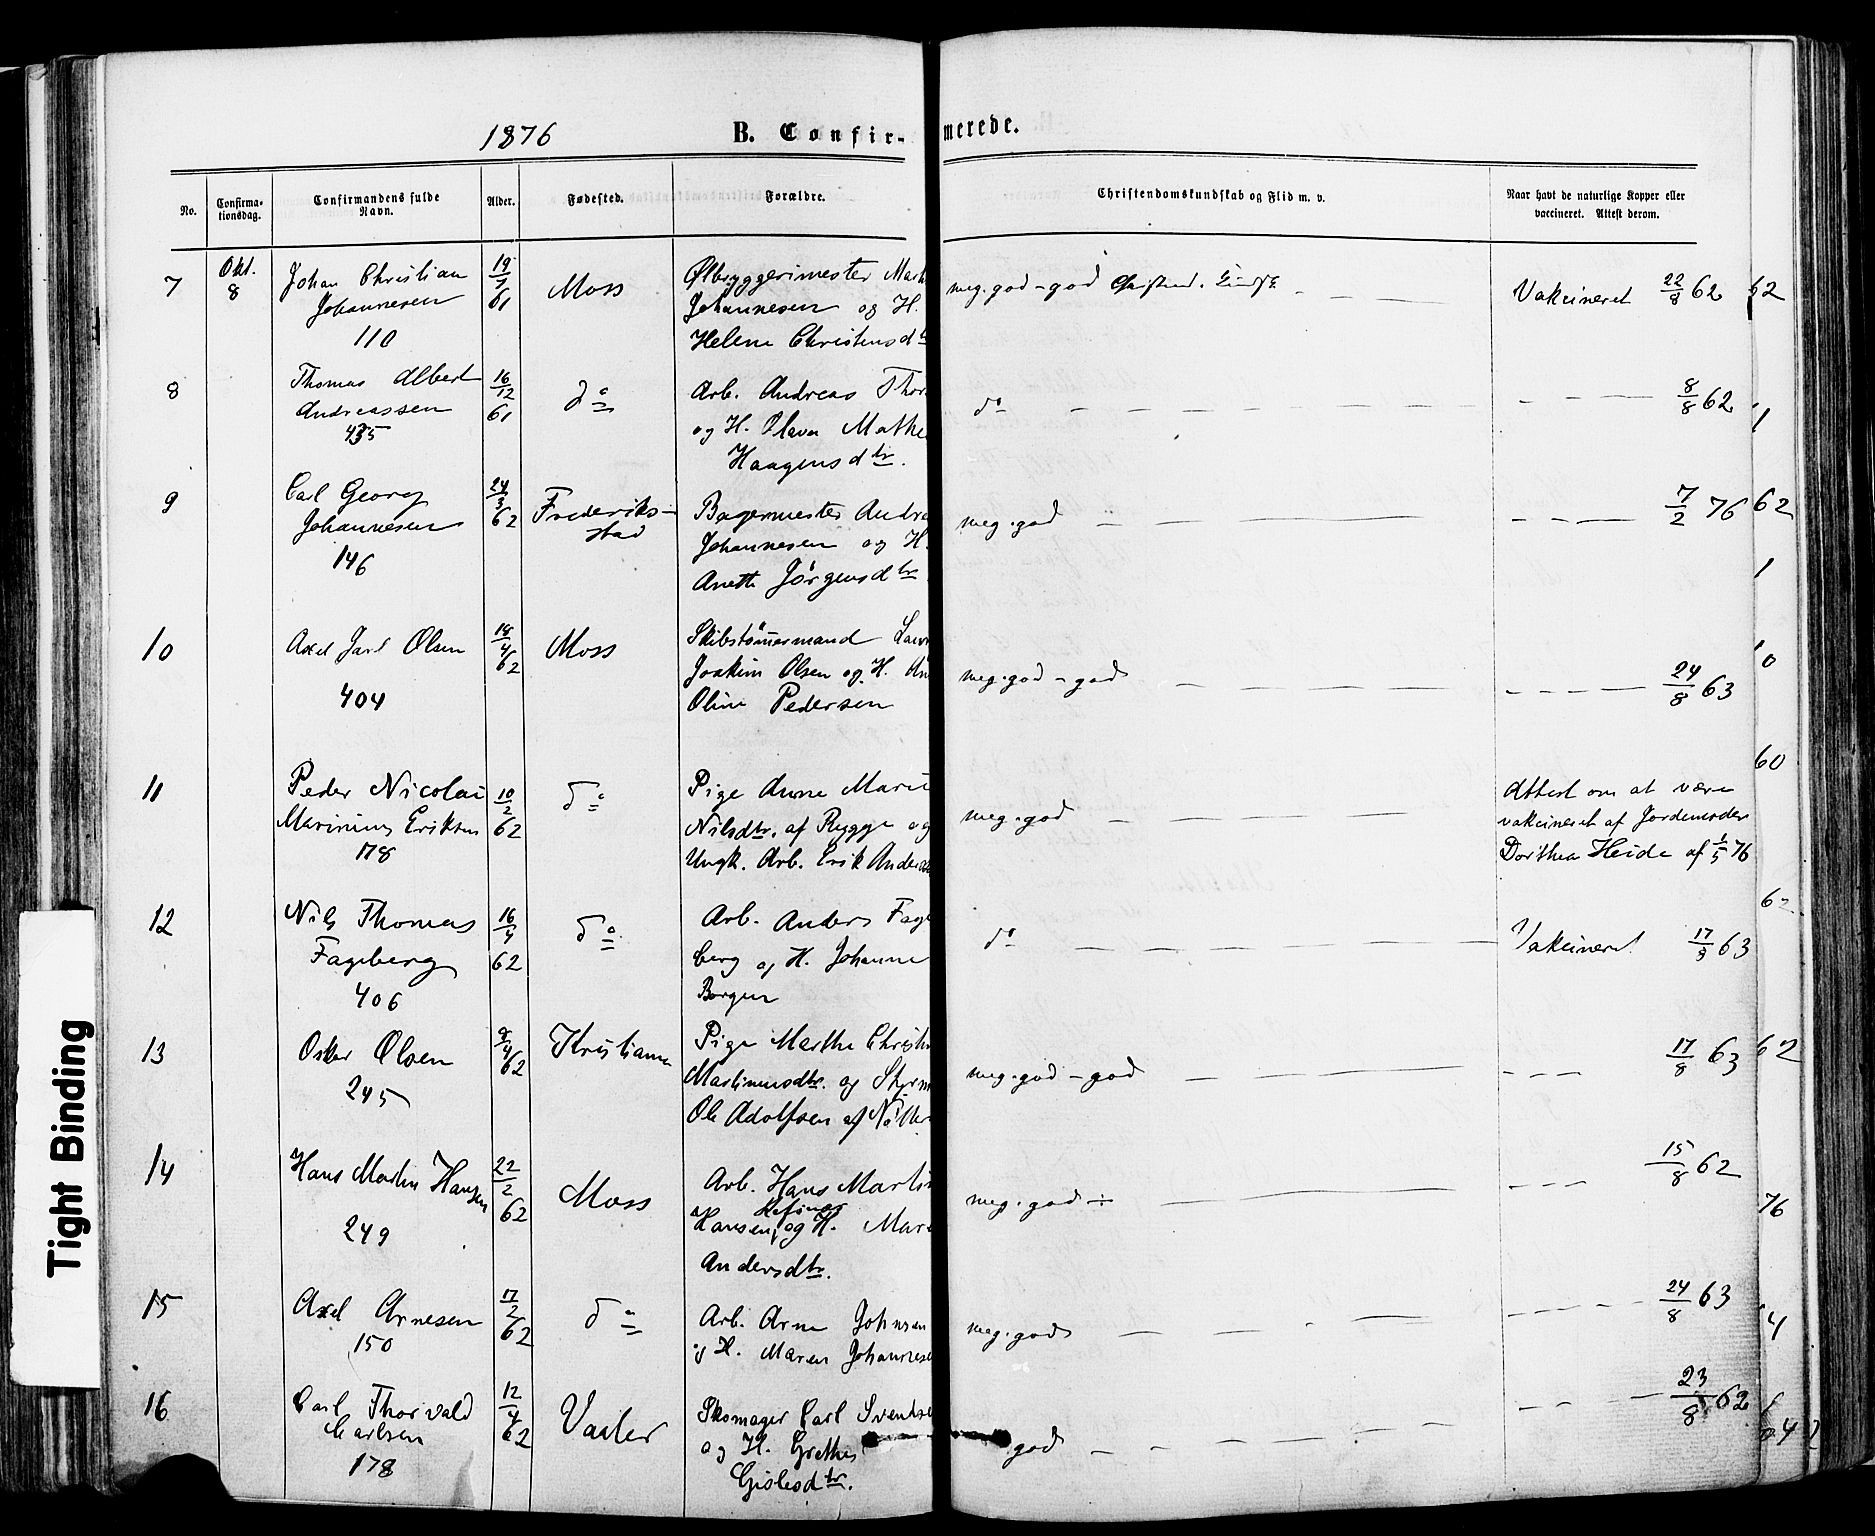 1876
B. Confir-
merede.
No.
Confirma-
tionsdag.
Confirmandens fulde
Navn.
Alder.
Fødested.
Forældre.
Christendomskundskab og Flid m. v.
Naar havt de naturlige Kopper eller
vaccineret. Attest derom.
7
Okt.
8
Johan Christian
Johannesen
110
19/7
61
Moss
Ølbryggerimester
Johannesen og H.
Helene Christensdtr
meg. god - god
Vakcineret 22/8 62
62
8
Thomas Albert
Andreassen
435
16/12
61
do
Arb. Andreas Thor
og H. Olava Mathe
Haagensdtr.
do
8/8 62
1
9
Carl Georg
Johannesen
146
24/3
62
Frederiks-
stad
Bagermester Andre
Johannesen og H.
Anette Jørgensdtr
meg. god
7/2 76
62
1
10
Axel Jarl Olsen
404
18/4
62
Moss
Skibstømmermand
Joakim Olsen og H. An
Oline Pedersen
meg. god - god
24/8 63
10
11
Peder Nicolai
Marinius Eriksen
178
10/2
62
do
Pige Anne Marie
Nilsdtr. af Rygge og
Ungk. Arb. Erik Anders
meg. god
60
Attest om at være
vakcineret af Jordemoder
Dorthea Heide af 1/5 76
12
Nils Thomas
Fageberg
406
16/4
62
do
Arb. Anders Fage
berg og H. Johanne
Borgen
do
Vakcineret 17/3 63
62
13
Oskar Olsen
245
9/4
62
Kristiania
Pige Marthe Christi
Martinusdtr. og Styrm
Ole Adolfsen af Nøtter
meg. god - god
17/8 63
62
14
Hans Martin Hansen
249
22/2
62
Moss
Arb. Hans Martin
Hansen Refsnes og H. Mare
Andersdtr.
meg. god ÷
15/8 62
76
15
Axel Arnesen
150
17/2
62
do
Arb. Arne Johnsen
og H. Maren Johannese
meg. god
24/8 63
4
16
Carl Thorvald
Carlsen
178
12/4
62
Vaaler
Skomager Carl Svendse
og H. Grethe
Gislesdtr.
god
23/8 62
Tight Binding